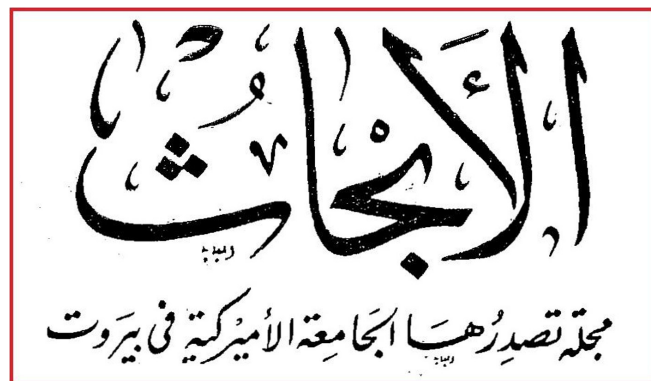 الأبحاثُ
مجلة تصدِرُها الجَامِعَة الأميْركية في بيَروت